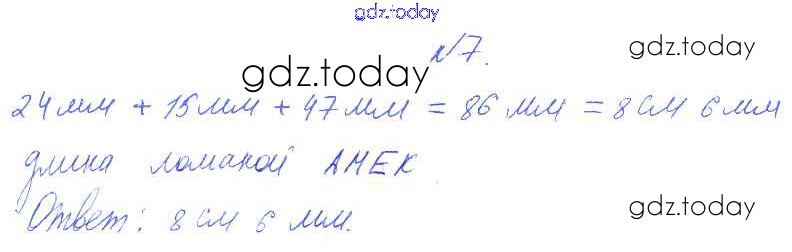 gdz.today
№7.
gdz.today
gdz.today
24мм + 15мм + 47мм = 86 мм = 8 см 6 мм
длина ломаной АМЕК
gdz.today
Ответ: 8 см 6 мм.